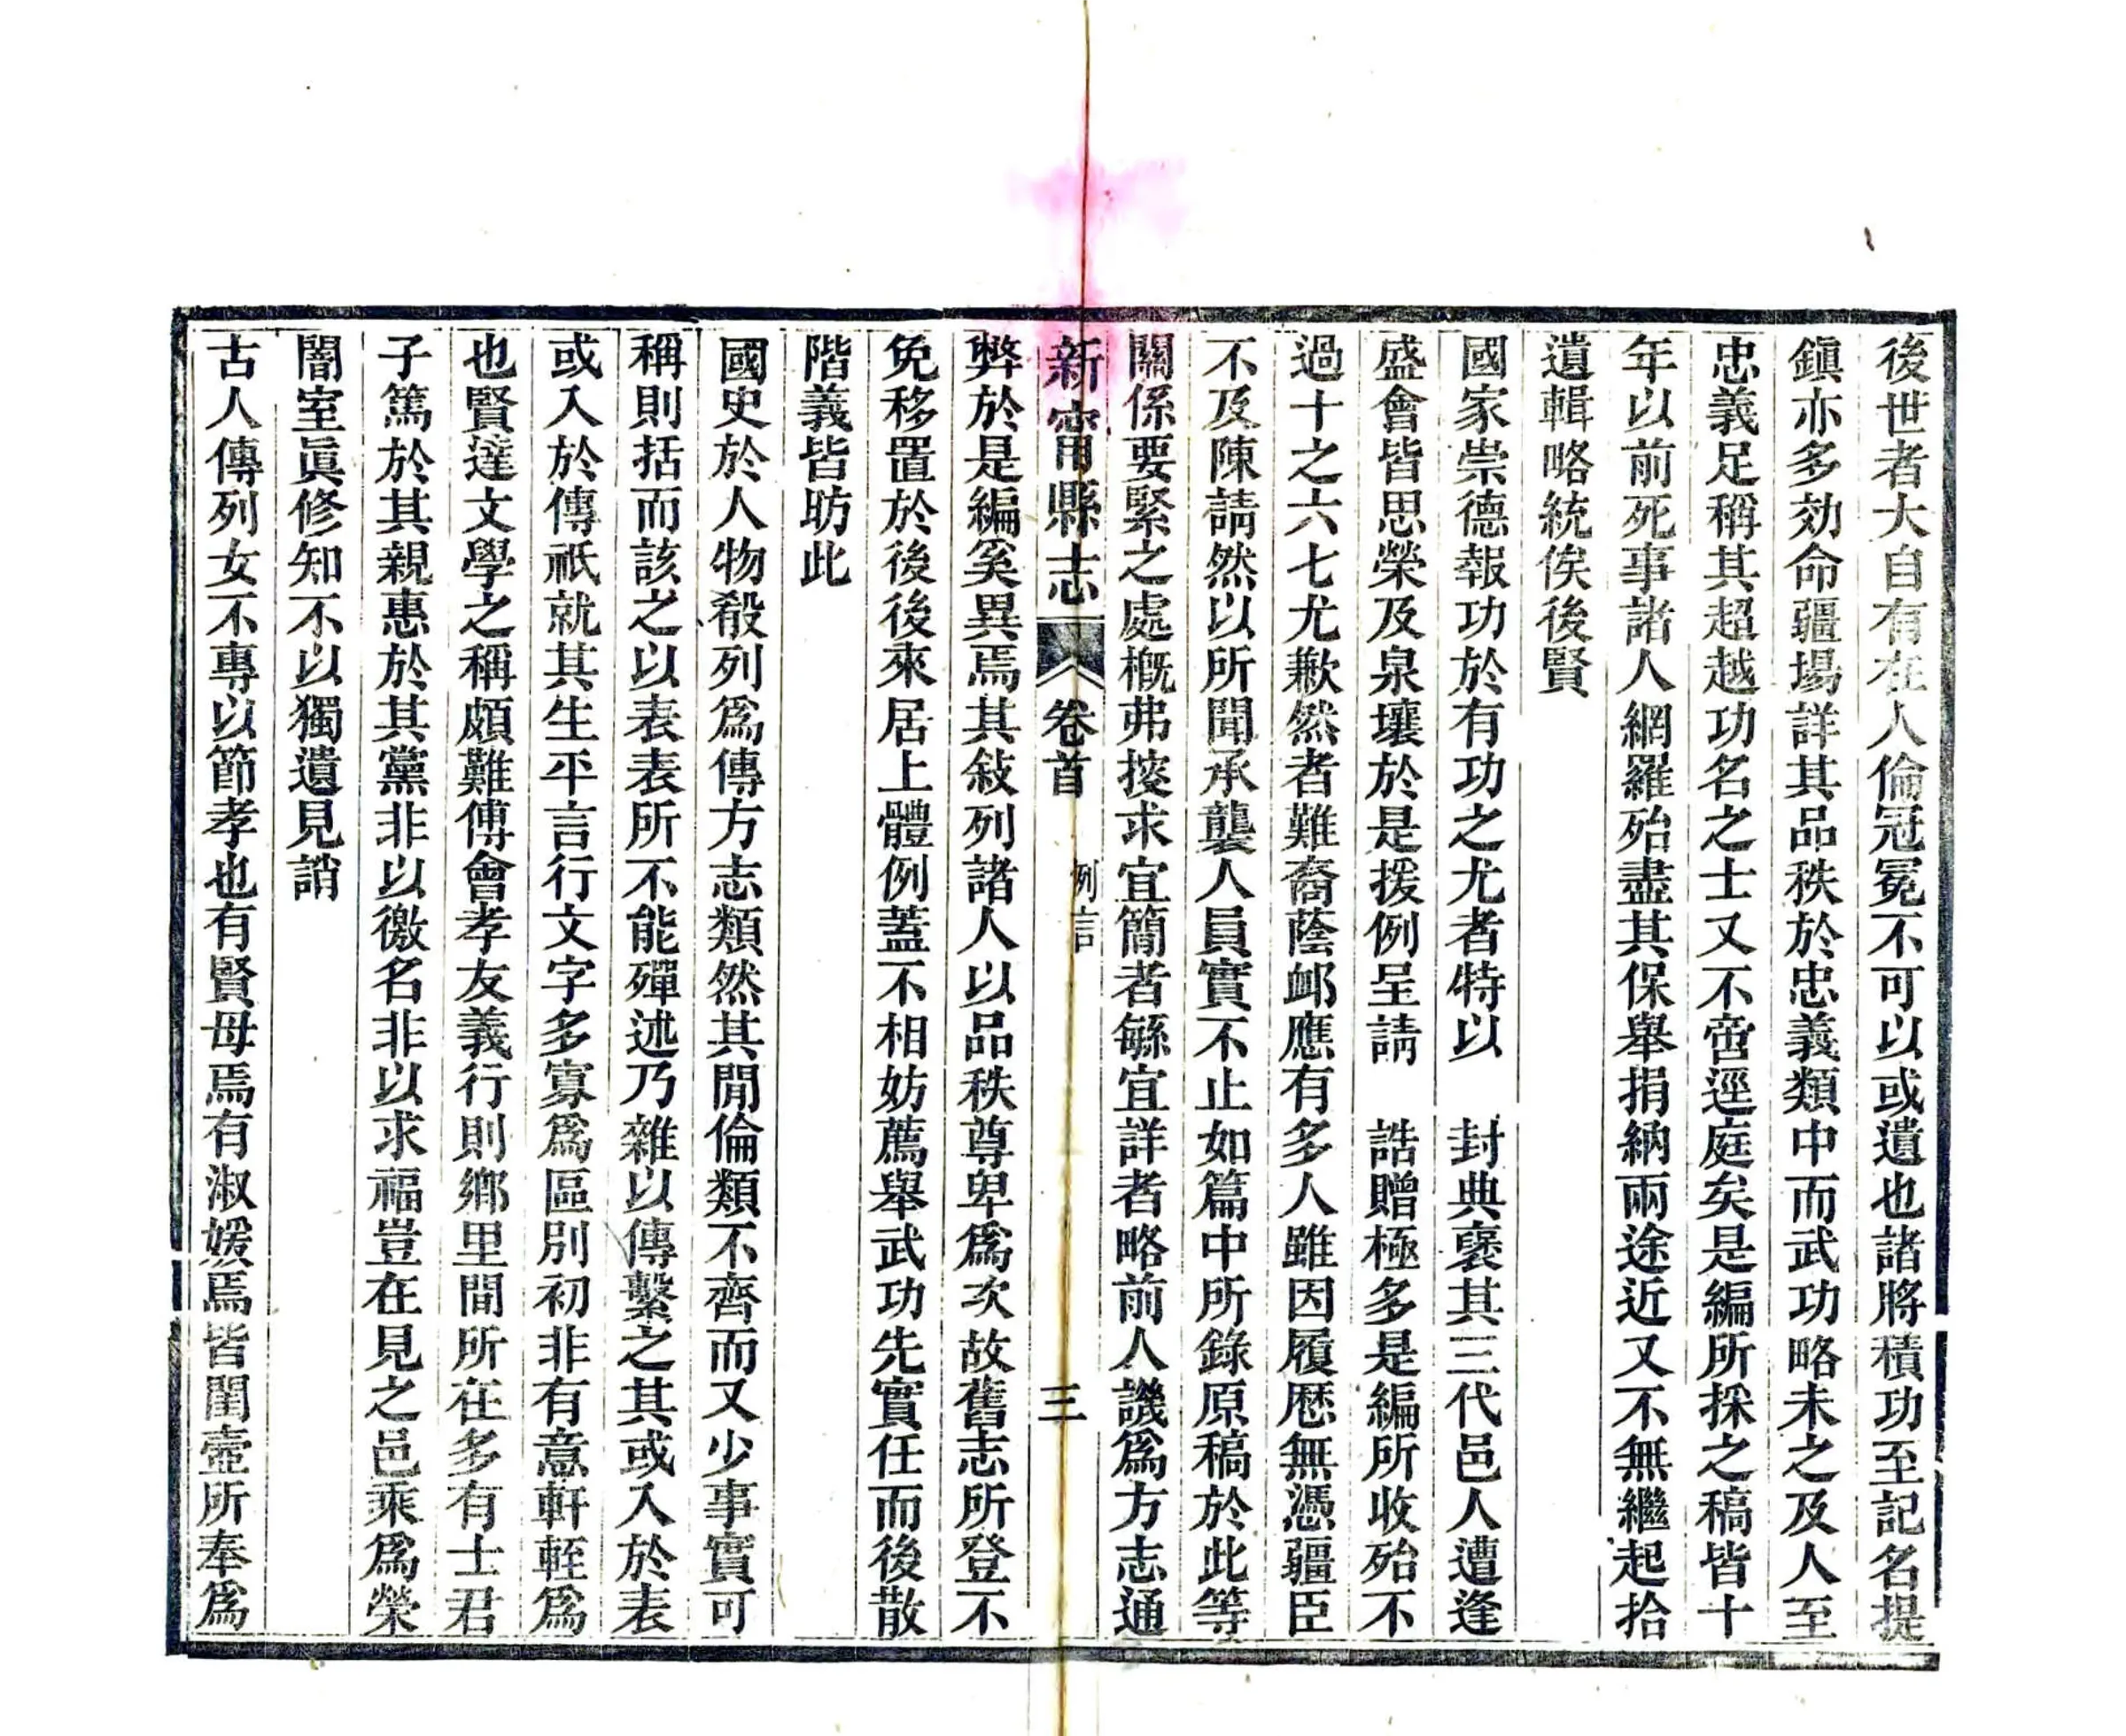 後世者大自有在人倫冠冕不可以或遺也諸將積功至記名提
鎭亦多効命疆場詳其品秩於忠義類中而武功略未之及人至
忠義足稱其超越功名之士又不啻逕庭矣是編所採之稿皆十
年以前死事諸人網羅殆盡其保舉捐納兩途近又不無繼起拾
遺輯略統俟後賢
國家崇德報功於有功之尤者特以　封典褒其三代邑人遭逢
盛會皆思榮及泉壤於是援例呈請　誥贈極多是編所收殆不
過十之六七尤歉然者難裔蔭䘏應有多人雖因履歷無憑疆臣
不及陳請然以所聞承襲人員實不止如篇中所錄原稿於此等
關係要緊之處槪弗搜求宜簡者緐宜詳者略前人譏爲方志通
新甯縣志　卷首　例言　三
弊於是編奚異焉其敍列諸人以品秩尊卑爲次故舊志所登不
免移置於後後來居上體例蓋不相妨薦舉武功先實任而後散
階義皆昉此
國史於人物殽列爲傳方志類然其閒倫類不齊而又少事實可
稱則括而該之以表表所不能殫述乃雜以傳繫之其或入於表
或入於傳祇就其生平言行文字多寡爲區別初非有意軒輊爲
也賢達文學之稱頗難傅會孝友義行則鄉里間所在多有士君
子篤於其親惠於其黨非以徼名非以求福豈在見之邑乘爲榮
闇室眞修知不以獨遺見誚
古人傳列女不專以節孝也有賢母焉有淑媛焉皆閨壼所奉爲